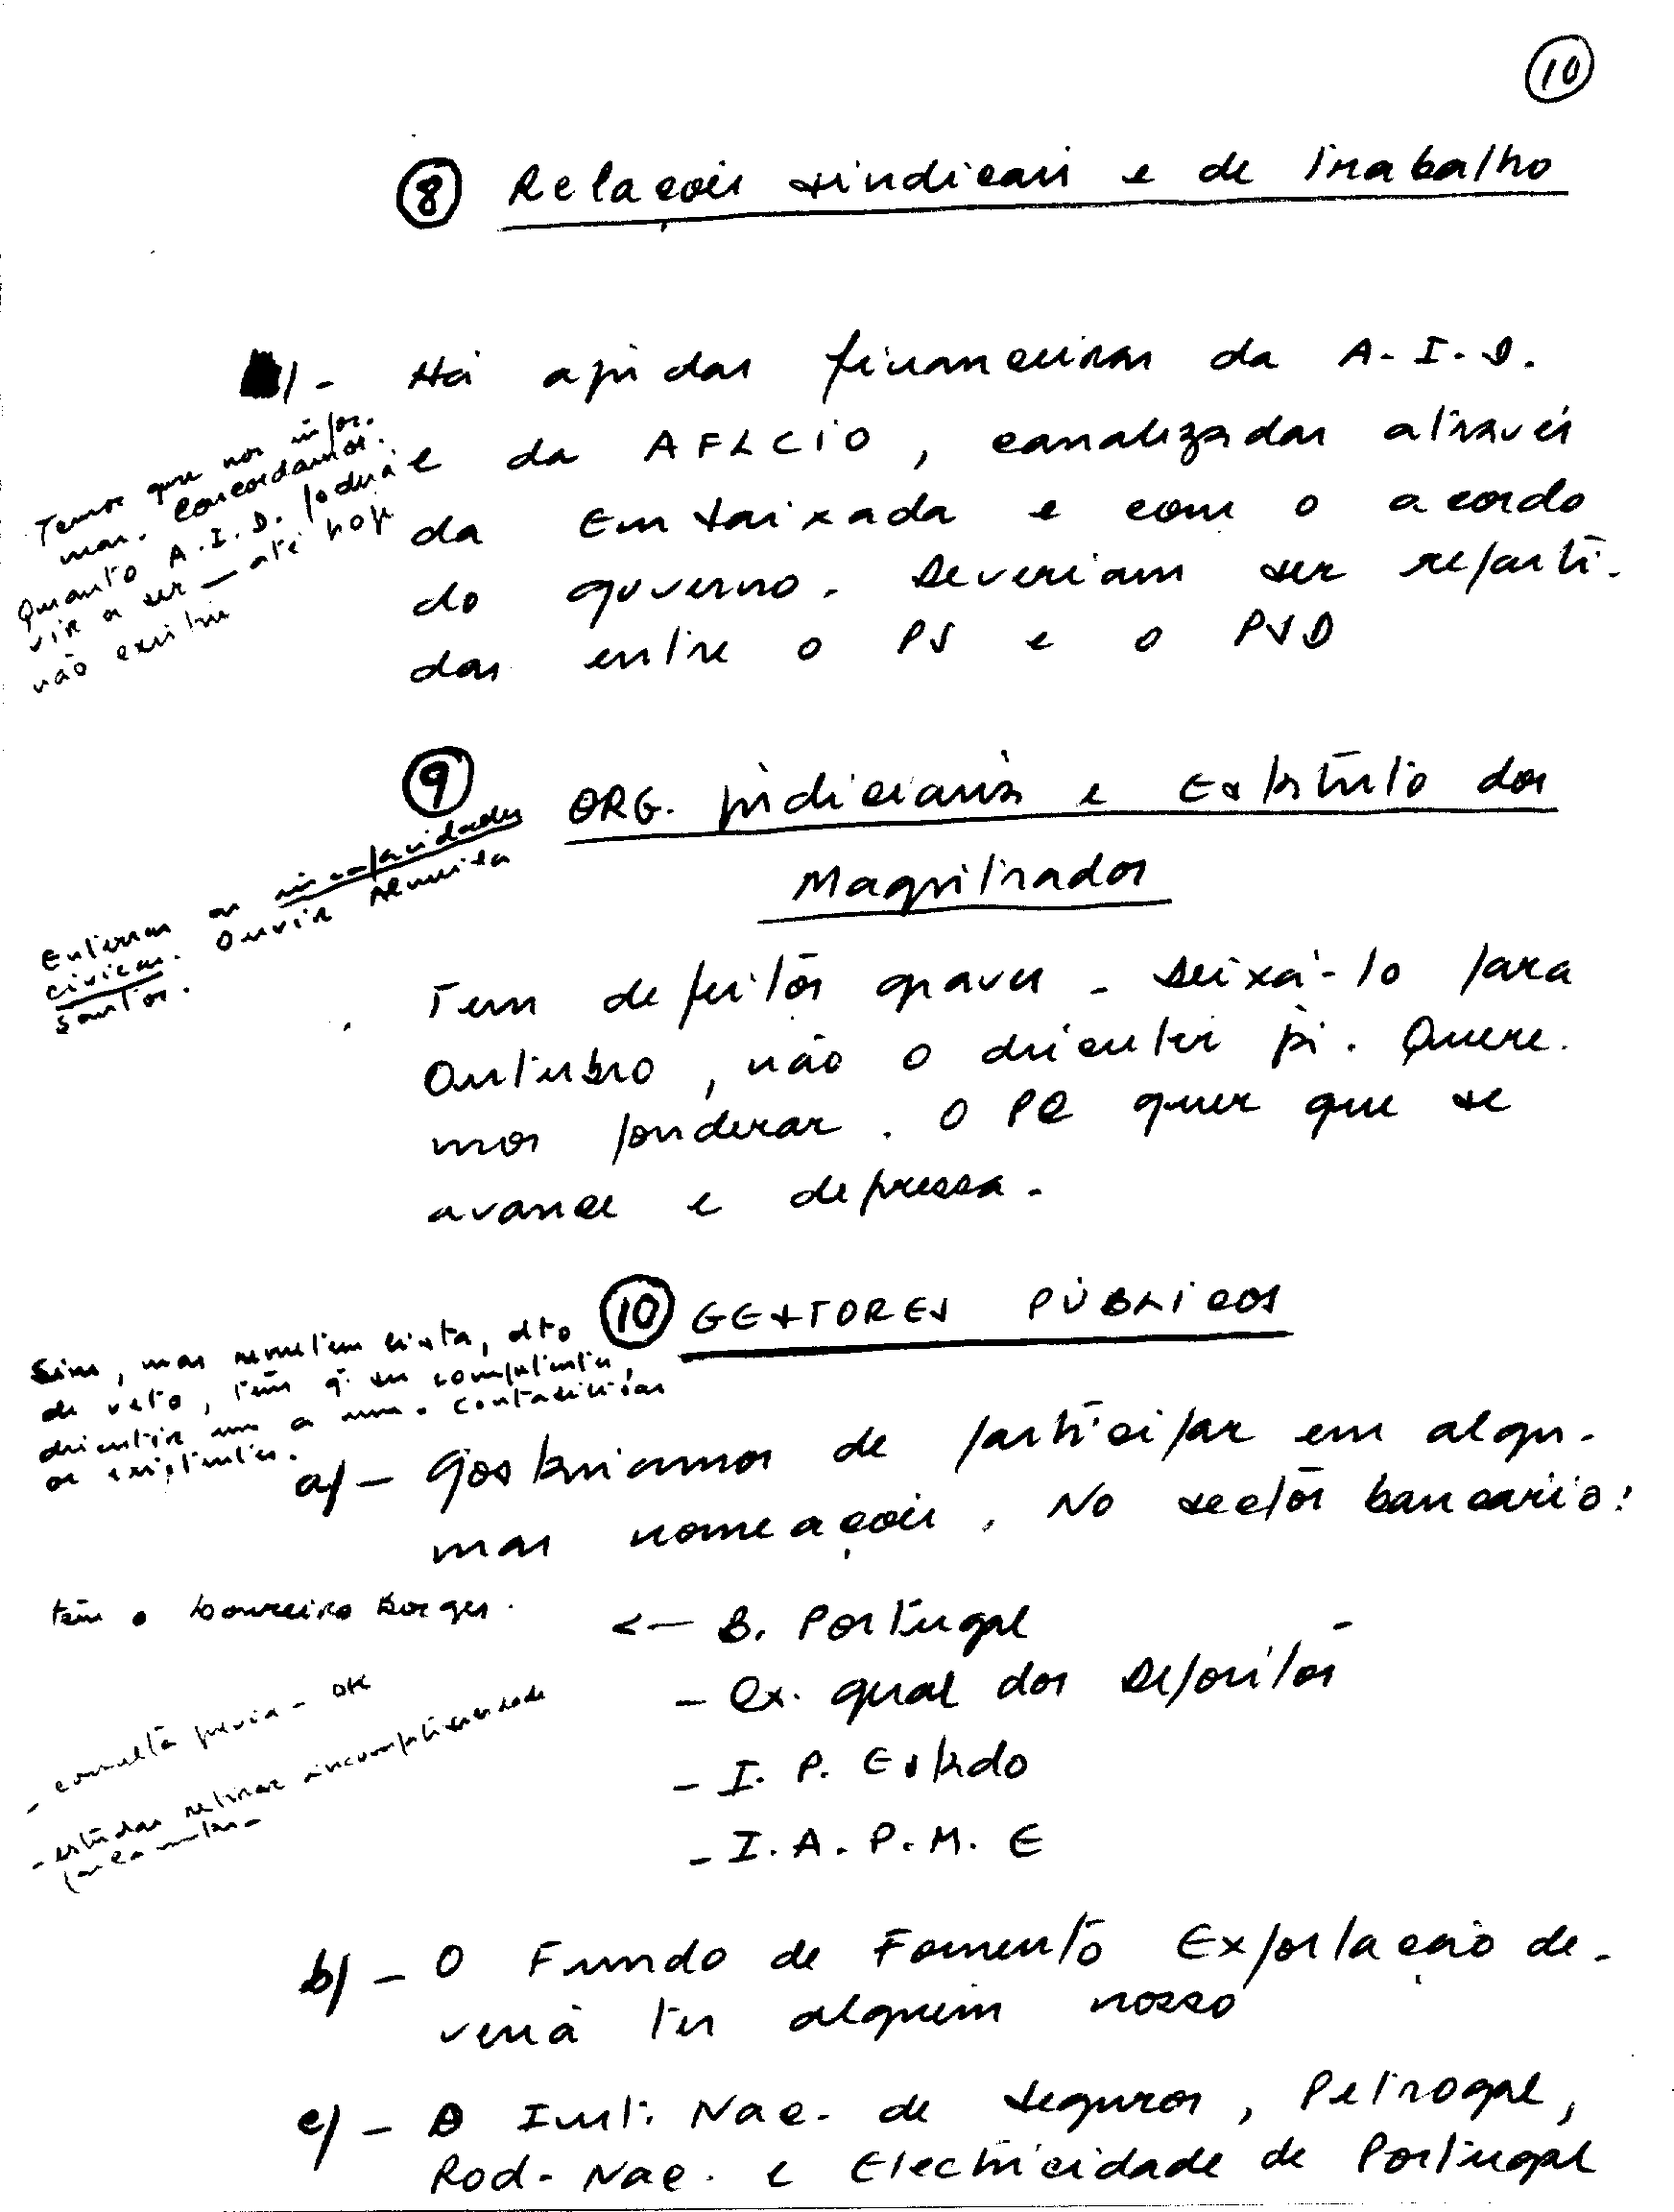 10
8 Relações sindicais e de trabalho
- Há ajudas financeiras da A.I.D.
e da AFLCIO, canalizadas através
da Embaixada e com o acordo
do governo. Deveriam ser reparti-
das entre o PS e o PSD
Temos que nos infor-
mar. Concordamos.
Quanto A.I.D. poderá
vir a ser — até hoje
não existiu
9 ORG. judiciária e Estatuto dos
Magistrados
Enterrar as incapacidades
cívicas. Ouvir Almeida
Santos.
Tem defeitos graves - Deixá-lo para
Outubro, não o discutir já. Quere-
mos ponderar. O PR quer que se
avance e depressa.
10 GESTORES PÚBLICOS
Sim, mas remetem lista, dto
de veto, têm q. ser competentes,
discutir um a um.
os existentes.
a) - Gostaríamos de participar em algu-
mas nomeações. No sector bancário:
têm o Loureiro Borges.
<- B. Portugal
- Cx. geral dos Depósitos
- I. P. Estado
- I. A. P. M. E
- consulta prévia - OK
- estudar retirar incompatibilidade
b) - O Fundo de Fomento Exportação de-
verá ter alguém nosso
c) - O Inst. Nac. de Seguros, Petrogal,
Rod. Nac. e Electricidade de Portugal